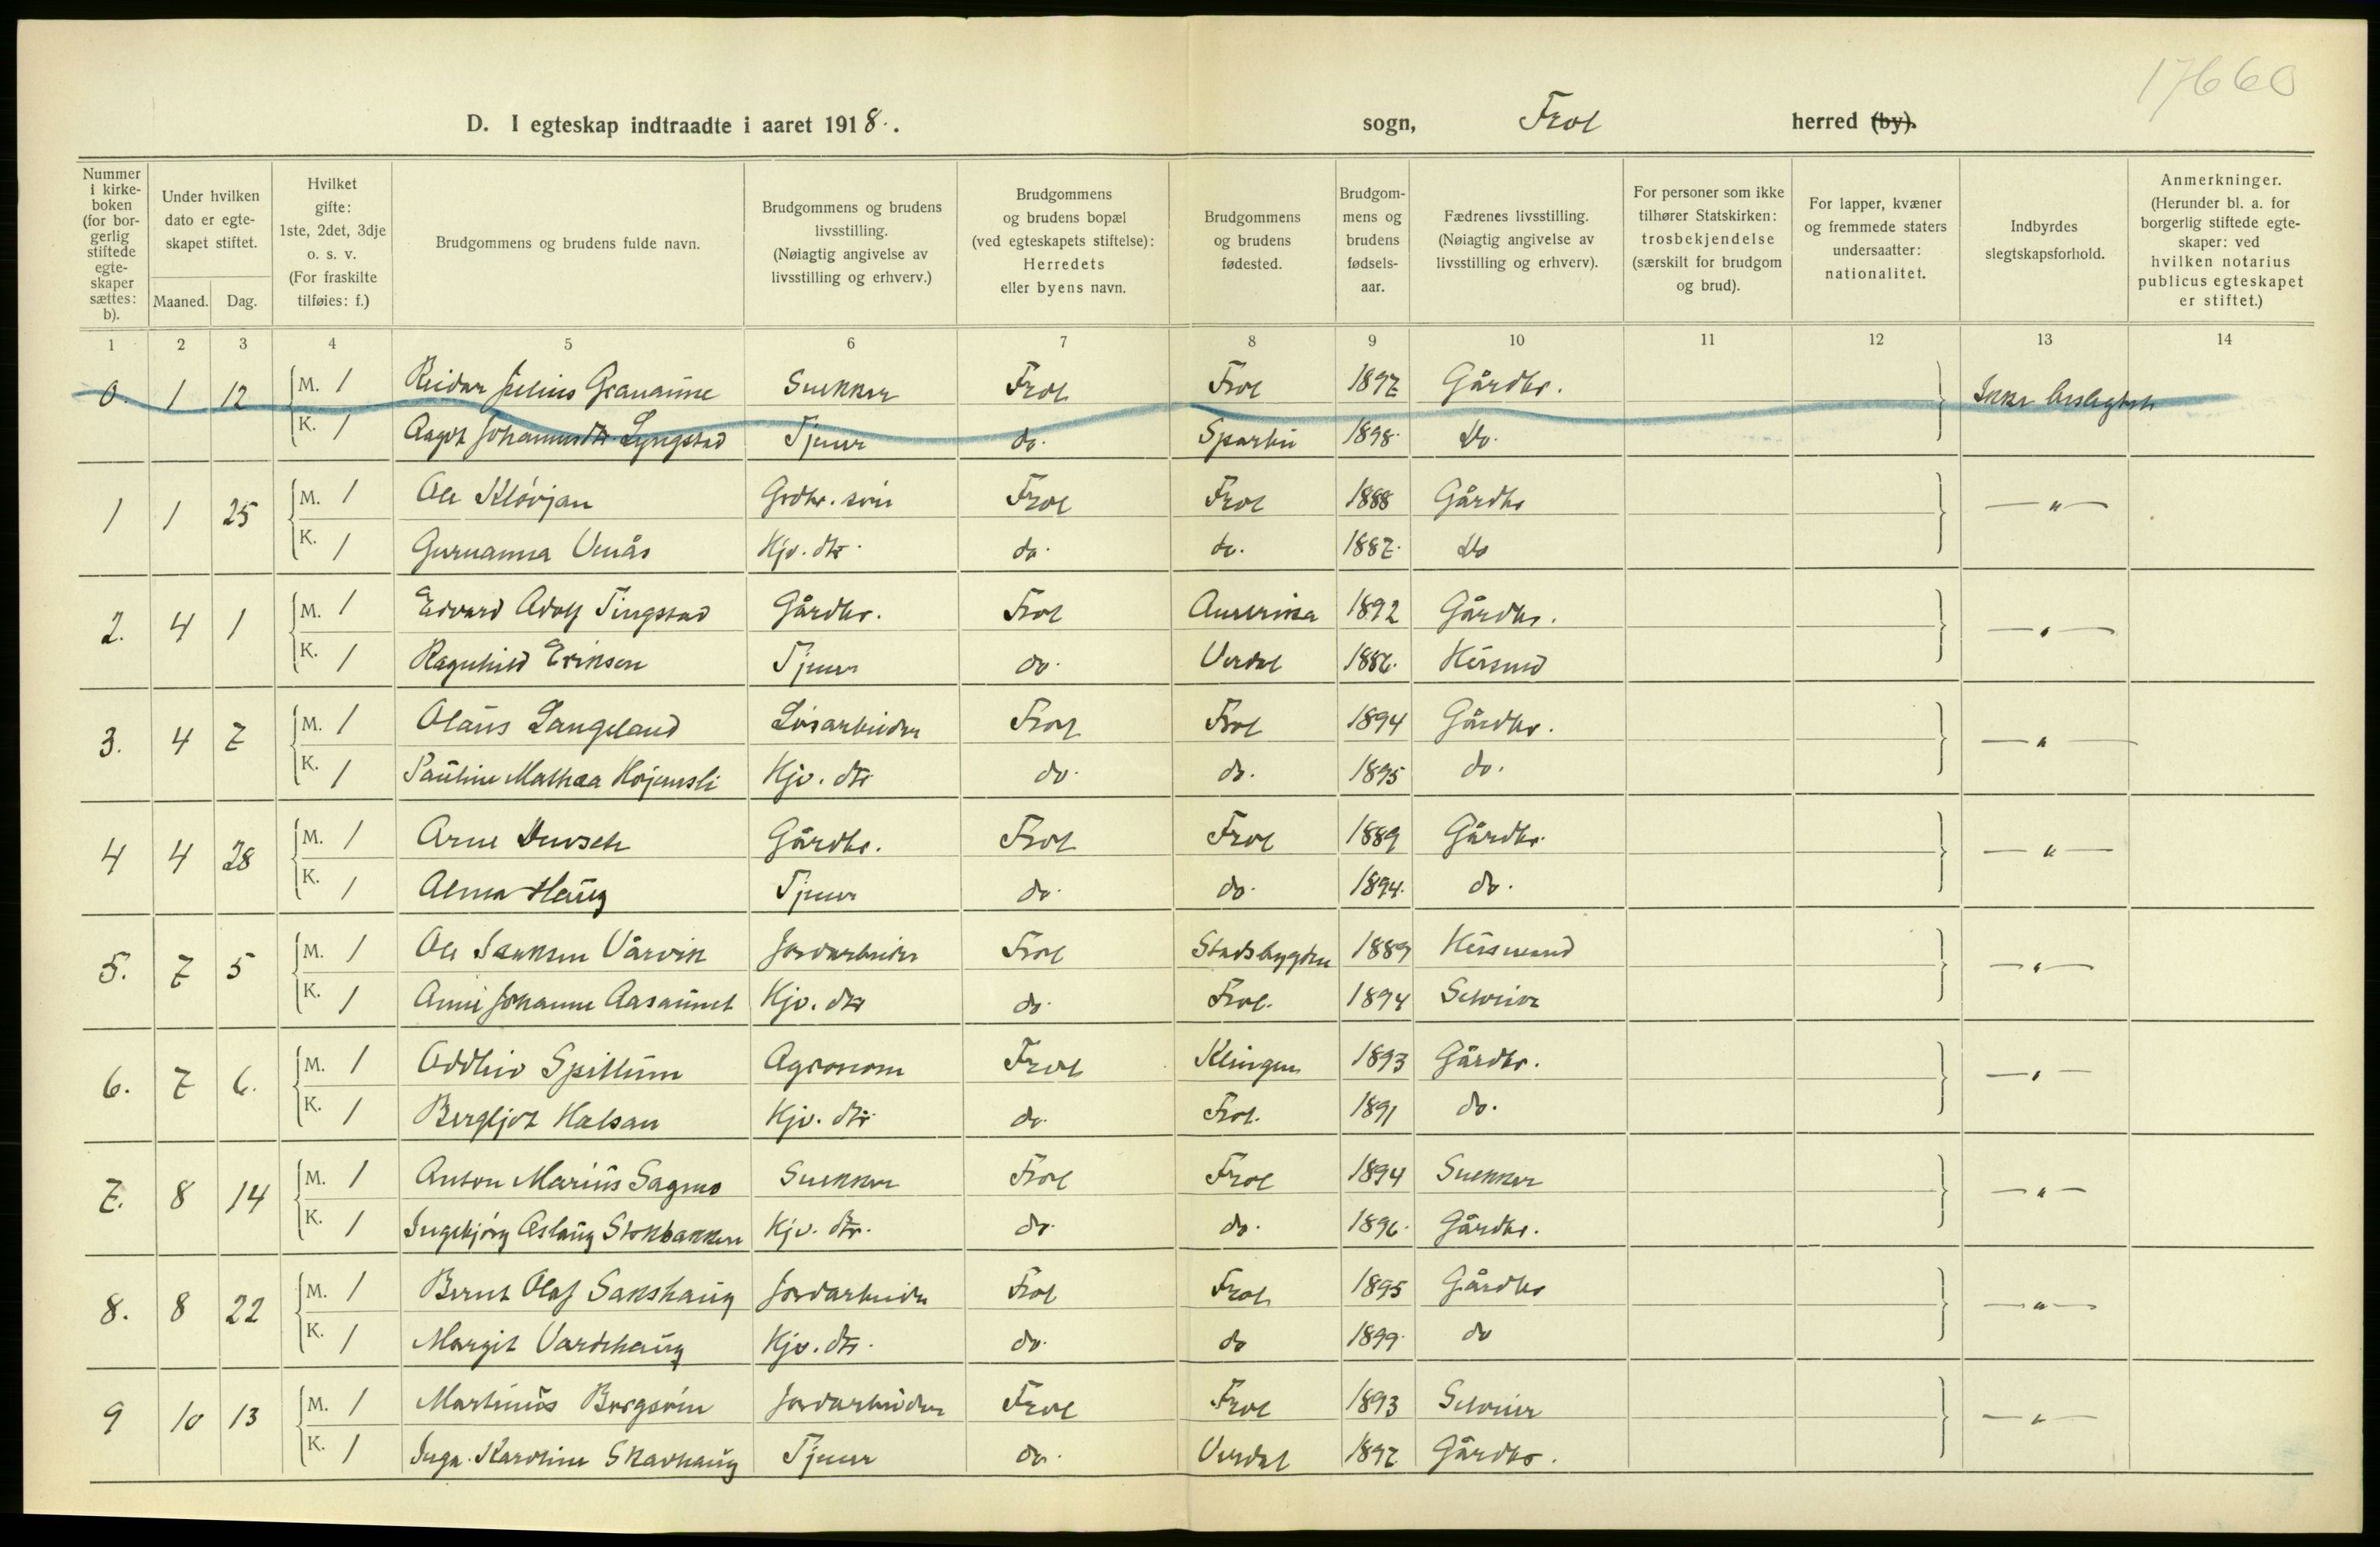 17660
D. I egteskap indtraadte i aaret 1918. . sogn, Frol herred (by).
Nummer i kirkeboken (for borgerlig stiftede egteskaper sættes: b).
Under hvilken dato er egteskapet stiftet.
Maaned. Dag.
Hvilket gifte: 1ste, 2det, 3dje o. s. v. (For fraskilte tilføies: f.)
Brudgommens og brudens fulde navn.
Brudgommens og brudens livsstilling. (Nøiagtig angivelse av livsstilling og erhverv.)
Brudgommens og brudens bopæl (ved egteskapets stiftelse): Herredets eller byens navn.
Brudgommens og brudens fødested.
Brudgommens og brudens fødselsaar.
Fædrenes livsstilling. (Nøiagtig angivelse av livsstilling og erhverv).
For personer som ikke tilhører Statskirken: trosbekjendelse (særskilt for brudgom og brud).
For lapper, kvæner og fremmede staters undersaatter: nationalitet.
Indbyrdes slegtskapsforhold.
Anmerkninger. (Herunder bl. a. for borgerlig stiftede egteskaper: ved hvilken notarius publicus egteskapet er stiftet.)
1 2 3 4 5 6 7 8 9 10 11 12 13 14
0. 1 12 M. 1 Reidar Julius Granaune Snekker Frol Frol 1897 Gårdbr. Ikke beslegtet
K. 1 Aagot Johannesdtr Lyngstad Tjener do. Sparbu 1898. Do.
1 1 25 M. 1 Ole Kløvjan Grdbr. søn Frol Frol 1888 Gårdbr — " —
K. 1 Gurnanna Venås Hjv. dtr. do. do. 1887. Do
2. 4 1 M. 1 Edvard Adolf Tingstad Gårdbr. Frol Amerika 1892 Gårdbr. — " —
K. 1 Ragnhild Eriksen Tjener do. Verdal 1886. Husmd
3. 4 7 M. 1 Olaus Langeland Løsarbeider Frol Frol 1894 Gårdbr. — " —
K. 1 Pauline Mathea Højemsli Hjv. dtr do. do. 1895 do.
4 4 28 M. 1 Arne Devseh Gårdbr. Frol Frol 1889 Gårdbr. — " —
K. 1 Alma Haug Tjener do. do. 1894. do.
5. 7 5 M. 1 Ole Isaksen Vårvik Jordarbeider Frol Stadsbygden 1889 Husmand — " —
K. 1 Anne Johanne Aasaunet Hjv. dtr do. Frol. 1894 Selveier
6. 7 6. M. 1 Oddleiv Spillum Agronom Frol Klingen 1893 Gårdbr. — " —
K. 1 Bergljot Halsan Hjv. dtr. do. Frol. 1891 do.
7. 8 14 M. 1 Anton Marius Sagmo Snekker Frol Frol 1894 Snekker — " —
K. 1 Ingebjørg Aslaug Stokbakken Hjv. dtr. do. do. 1896. Gårdbr.
8. 8 22 M. 1 Bernt Olaf Sakshaug Jordarbeider Frol Frol 1895 Gårdbr — " —
K. 1 Margit Vardehaug Hjv. dtr. do. do 1899. do
9 10 13 M. 1 Martinus Borgsvin Jordarbeider Frol Frol 1893 Selveier — " —
K. 1 Inga Karoline Skavhaug Tjener do. Verdal 1897 Gårdbr.